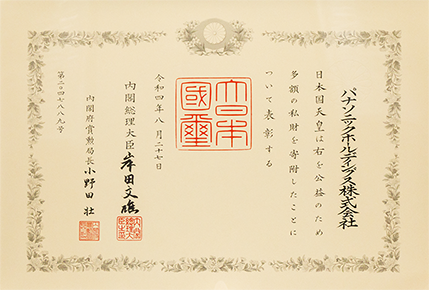 パナソニックホールディングス株式会社
日本国天皇は右を公益のため
多額の私財を寄附したことに
ついて表彰する
大日本
國璽
令和四年八月二十七日
内閣総理大臣 岸田文雄
内閣府賞勲局長 小野田 壮
第二〇四七八八九号